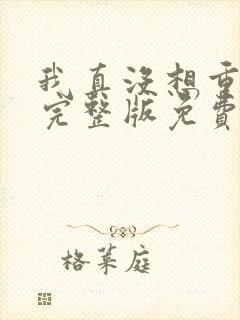 我真没想重
完整版免费
格莱庭